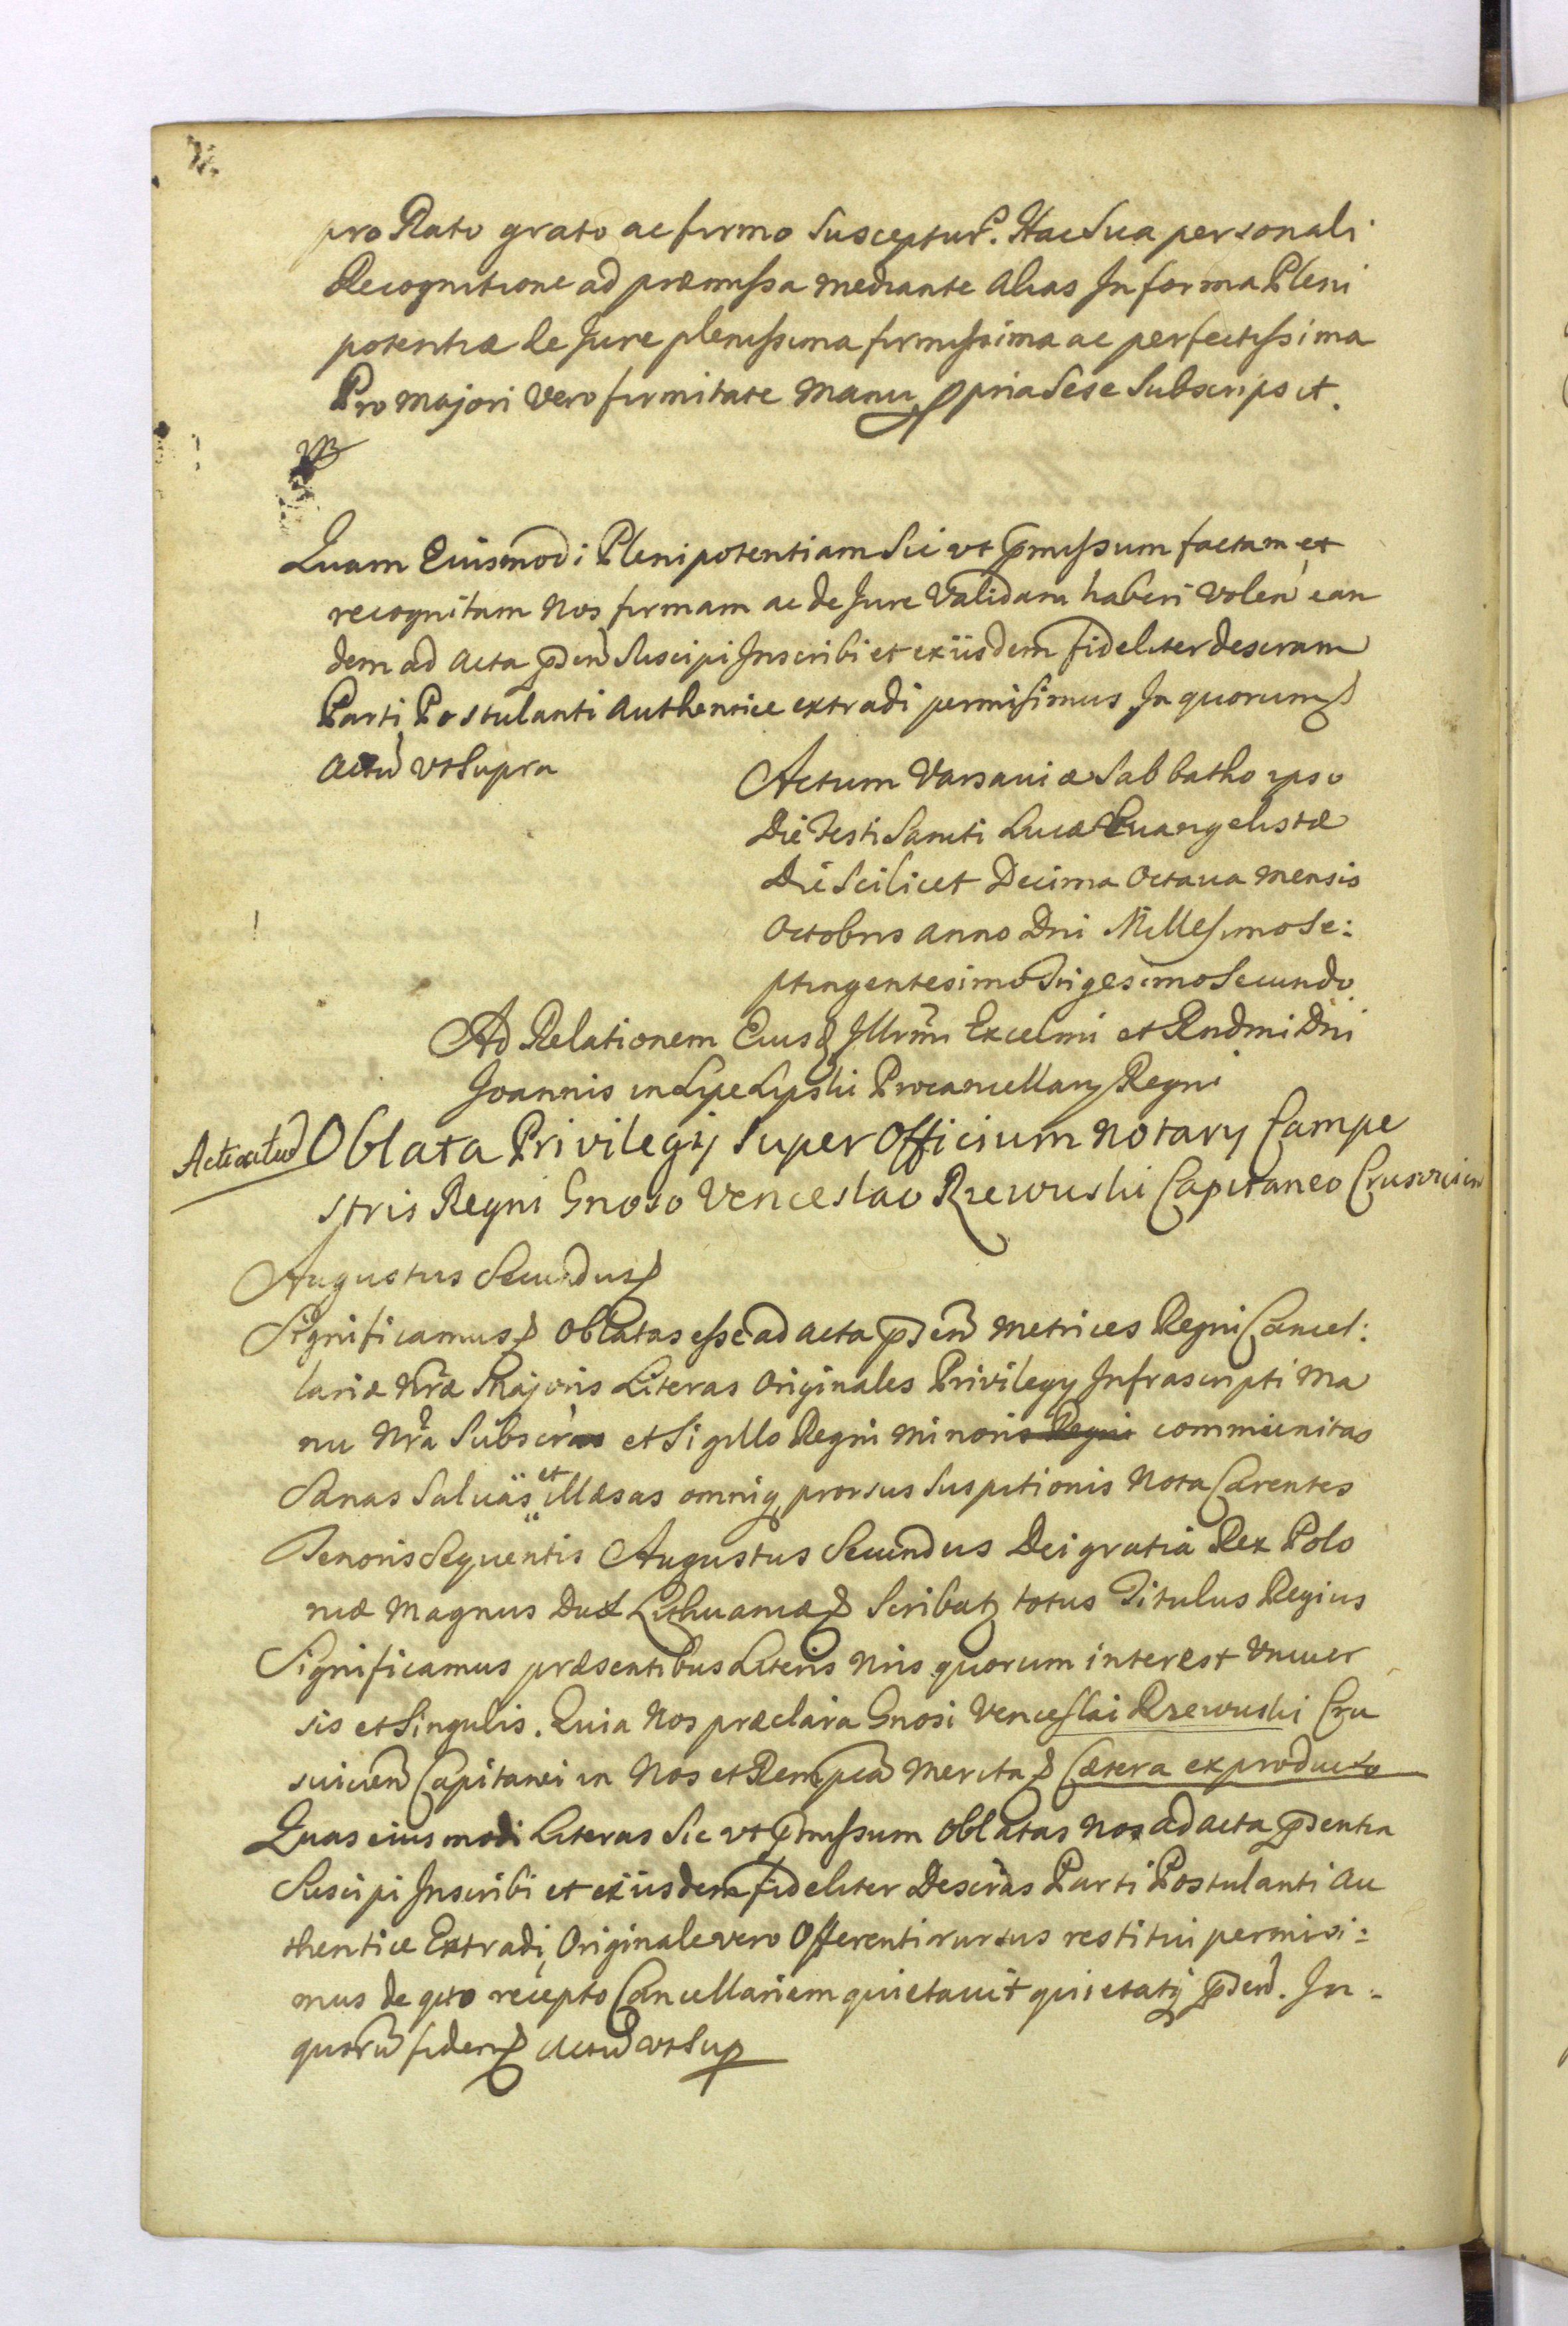 pro Rato grato ac firmo Susceptur. Hac Sua personali
Recognitione ad præmissa mediante alias In forma Pleni
potentiæ de Jure plenissima firmissima ac perfectissima
Pro majori Vero firmitate Manu ppria Sese Subscripsit.
Quam Eiusmodi Plenipotentiam Sic vt pmissum factam et
recognitam Nos firmam ac de Jure Validam haberi Volen ean
dem ad Acta pden Suscipi Inscribi et exiisdem fideliter descram
Parti Postulanti Authentice extradi permisimus In quorum
Actu vt Supra
Actum Varsaviæ Sabbatho ipso
Die Festi Sancti Lucæ Euangelistæ
Die Scilicet Decima Octaua mensis
Octobris anno Dni Millesimo Se:
ptingentesimo Trigesimo Secundo
Ad Relationem Eiusd Illrmi Excelmi et Rndmi Dni
Joannis in Lipe Lipski Procancellarij Regni
Acticatu Oblata Privilegij Super Officium Notarij Campe
stris Regni Gnoso Venceslao Rzewuski Capitaneo Crusvicien
Augustus Secundus
Significamus Oblatas esse ad acta pden metrices Regni Cancel:
lariæ Nræ Majoris Literas Originales Privilegij Infrascripti Ma
nu Nra Subscras et Sigillo Regni minoris Regni communitas
Sanas Saluas et illæsas omniq prorsus Suspitionis Nota Carentes
Tenoris Sequentis Augustus Secundus Dei gratia Rex Polo
niæ Magnus Dux Lithuaniæ Scribat totus Titulus Regius
Significamus præsentibus Literis Nris quorum interest vniuer
sis et Singulis. Quia Nos præclara Gnosi Venceslai Rzewuski Cru
suicien Capitanei in Nos et Rempcam Merita Cætera ex producto
Quas eiusmodi Literas Sic vt pmissum Oblatas Nos ad acta pdentia
Suscipi Inscribi et exiisdem fideliter Descras Parti Postulanti Au
thentice Extradi, Originale vero Offerenti rursus restitui permisi:
mus de qto recepto Cancellariam quietauit quietatq pden. In:
quoru fidem Actu vt Sup